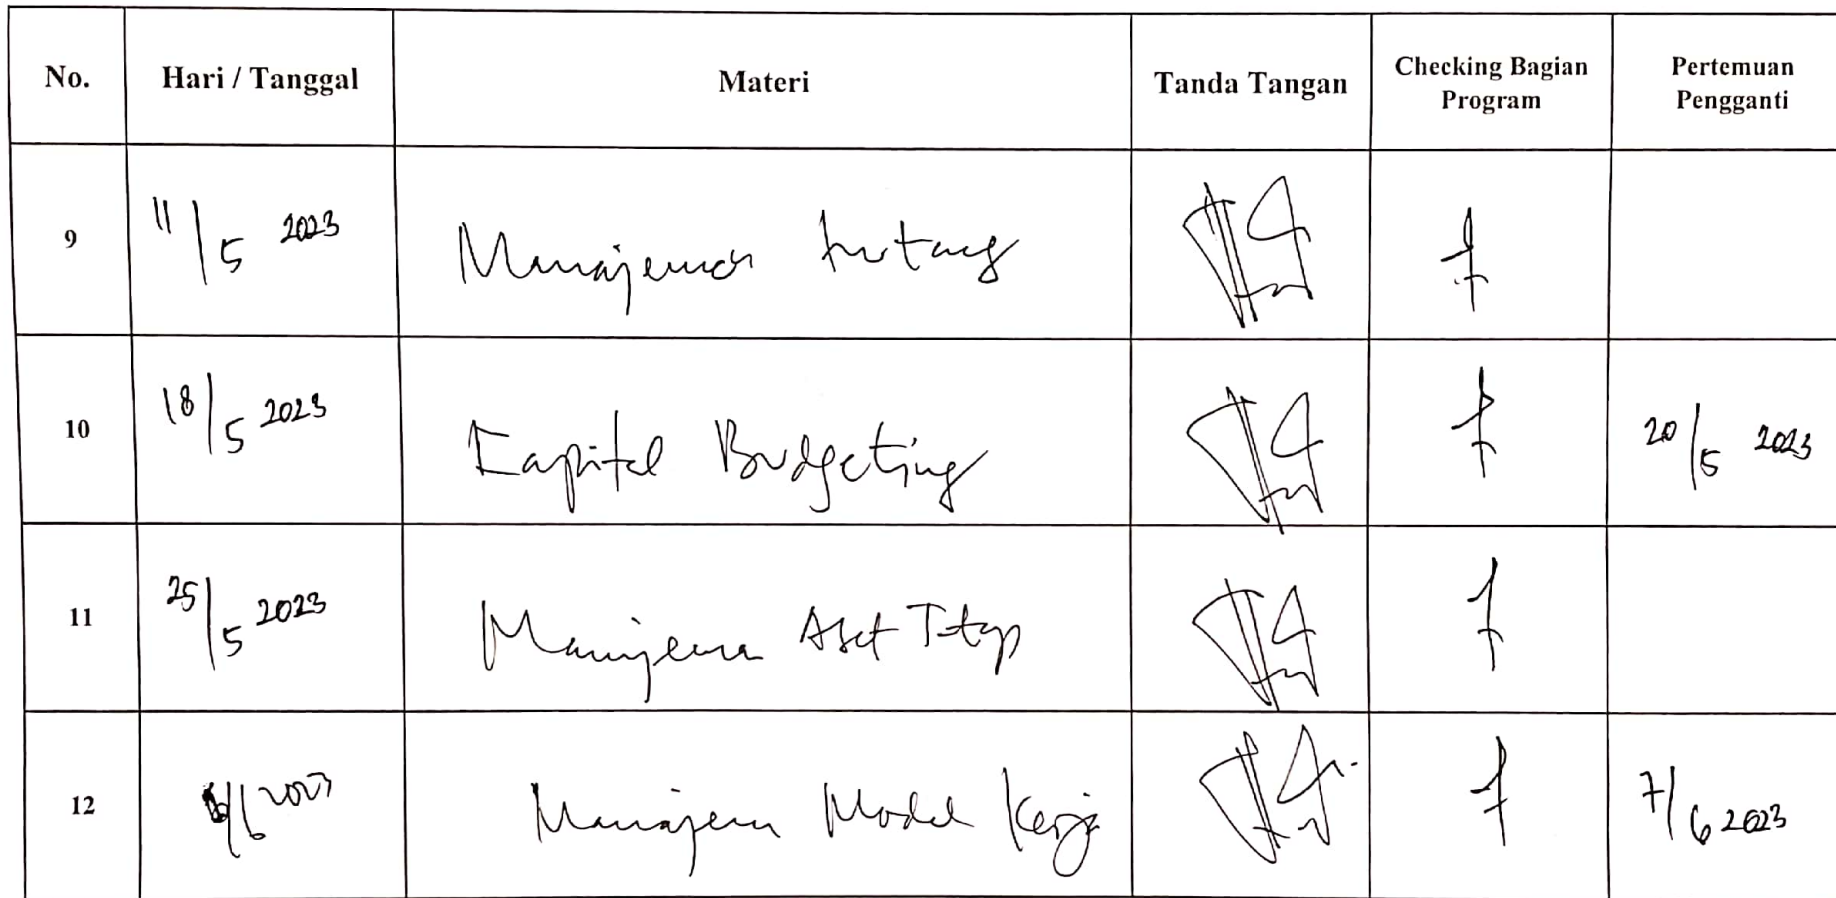 No. Hari / Tanggal Materi Tanda Tangan Checking Bagian Program Pertemuan Pengganti
9 11/5 2023 Manajemen
10 18/5 2023 Kapital Budgeting 20/5 2023
11 25/5 2023 Manajemen Aset Tetap
12 /6 2023 Manajemen Modal Kerja 7/6 2023